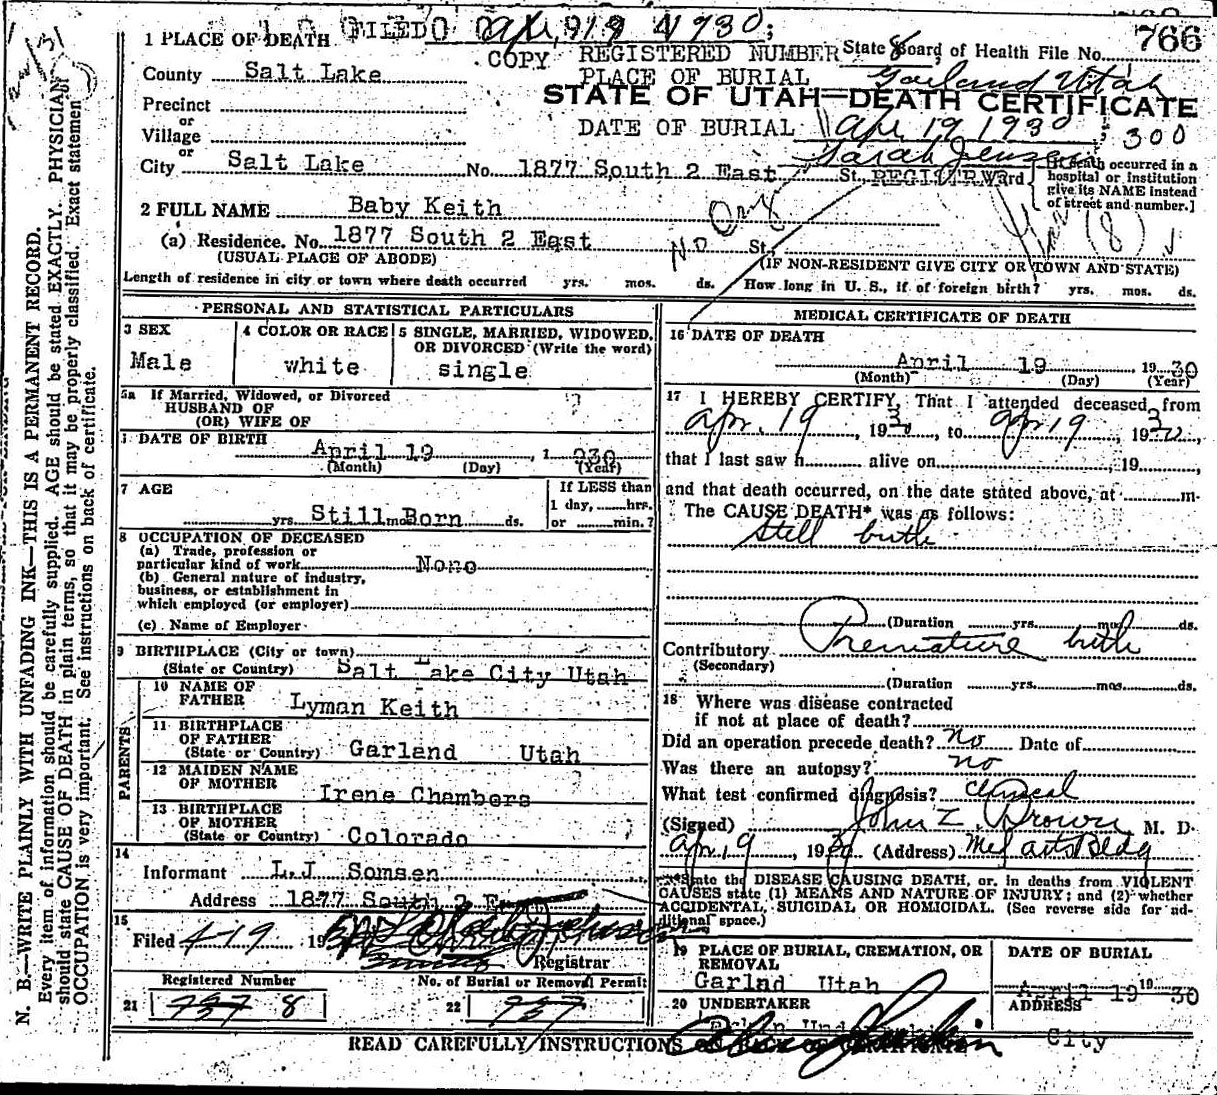 FILED
1930;
1 PLACE OF DEATH
COPY REGISTERED NUMBER 8
State Board of Health File No. 766
County Salt Lake
PLACE OF BURIAL Garland Utah
STATE OF UTAH—DEATH CERTIFICATE
Precinct
or
Village
DATE OF BURIAL Apr 19 1930; 300
or
City Salt Lake No. 1877 South 2 East St., Ward
Sarah Jensen
REGISTRAR
[If death occurred in a
hospital or institution
give its NAME instead
of street and number.]
2 FULL NAME Baby Keith
(a) Residence. No. 1877 South 2 East St.,
(USUAL PLACE OF ABODE)
(IF NON-RESIDENT GIVE CITY OR TOWN AND STATE)
(8)
Length of residence in city or town where death occurred yrs. mos. ds. How long in U. S., if of foreign birth? yrs. mos. ds.
PERSONAL AND STATISTICAL PARTICULARS
3 SEX
Male
4 COLOR OR RACE
white
5 SINGLE, MARRIED, WIDOWED,
OR DIVORCED (Write the word)
single
5a If Married, Widowed, or Divorced
HUSBAND OF
(OR) WIFE OF
DATE OF BIRTH
April 19, 1930
(Month) (Day) (Year)
7 AGE
Still Born
yrs. mos. ds.
If LESS than
1 day, hrs.
or min.?
8 OCCUPATION OF DECEASED
(a) Trade, profession or
particular kind of work None
(b) General nature of industry,
business, or establishment in
which employed (or employer)
(c) Name of Employer
9 BIRTHPLACE (City or town)
(State or Country) Salt Lake City Utah
PARENTS
10 NAME OF
FATHER Lyman Keith
11 BIRTHPLACE
OF FATHER
(State or Country) Garland Utah
12 MAIDEN NAME
OF MOTHER Irene Chambers
13 BIRTHPLACE
OF MOTHER
(State or Country) Colorado
14
Informant L.J. Somsen
Address 1877 South 2 East
15
Filed 4-19 19
Registrar
Registered Number
21 757 8
No. of Burial or Removal Permit
22 757
MEDICAL CERTIFICATE OF DEATH
16 DATE OF DEATH
April 19 1930
(Month) (Day) (Year)
17 I HEREBY CERTIFY, That I attended deceased from
Apr. 19, 1930, to Apr 19, 1930,
that I last saw h alive on , 19 ,
and that death occurred, on the date stated above, at m.
The CAUSE DEATH* was as follows:
Still birth
(Duration yrs. mos. ds.
Contributory Premature birth
(Secondary)
(Duration yrs. mos. ds.
18 Where was disease contracted
if not at place of death?
Did an operation precede death? no Date of
Was there an autopsy? no
What test confirmed diagnosis? Clinical
(Signed) John Z. Brown M. D.
Apr, 19, 1930 (Address) Med Arts Bldg
*State the DISEASE CAUSING DEATH, or, in deaths from VIOLENT
CAUSES state (1) MEANS AND NATURE OF INJURY; and (2) whether
ACCIDENTAL, SUICIDAL OR HOMICIDAL. (See reverse side for ad-
ditional space.)
19 PLACE OF BURIAL, CREMATION, OR
REMOVAL
Garlnd Utah
DATE OF BURIAL
April 19 1930
20 UNDERTAKER
ADDRESS
City
READ CAREFULLY INSTRUCTIONS ON BACK OF CERTIFICATE
N. B.—WRITE PLAINLY WITH UNFADING INK—THIS IS A PERMANENT RECORD.
Every item of information should be carefully supplied. AGE should be stated EXACTLY. PHYSICIAN
should state CAUSE OF DEATH in plain terms, so that it may be properly classified. Exact statement of
OCCUPATION is very important. See instructions on back of certificate.